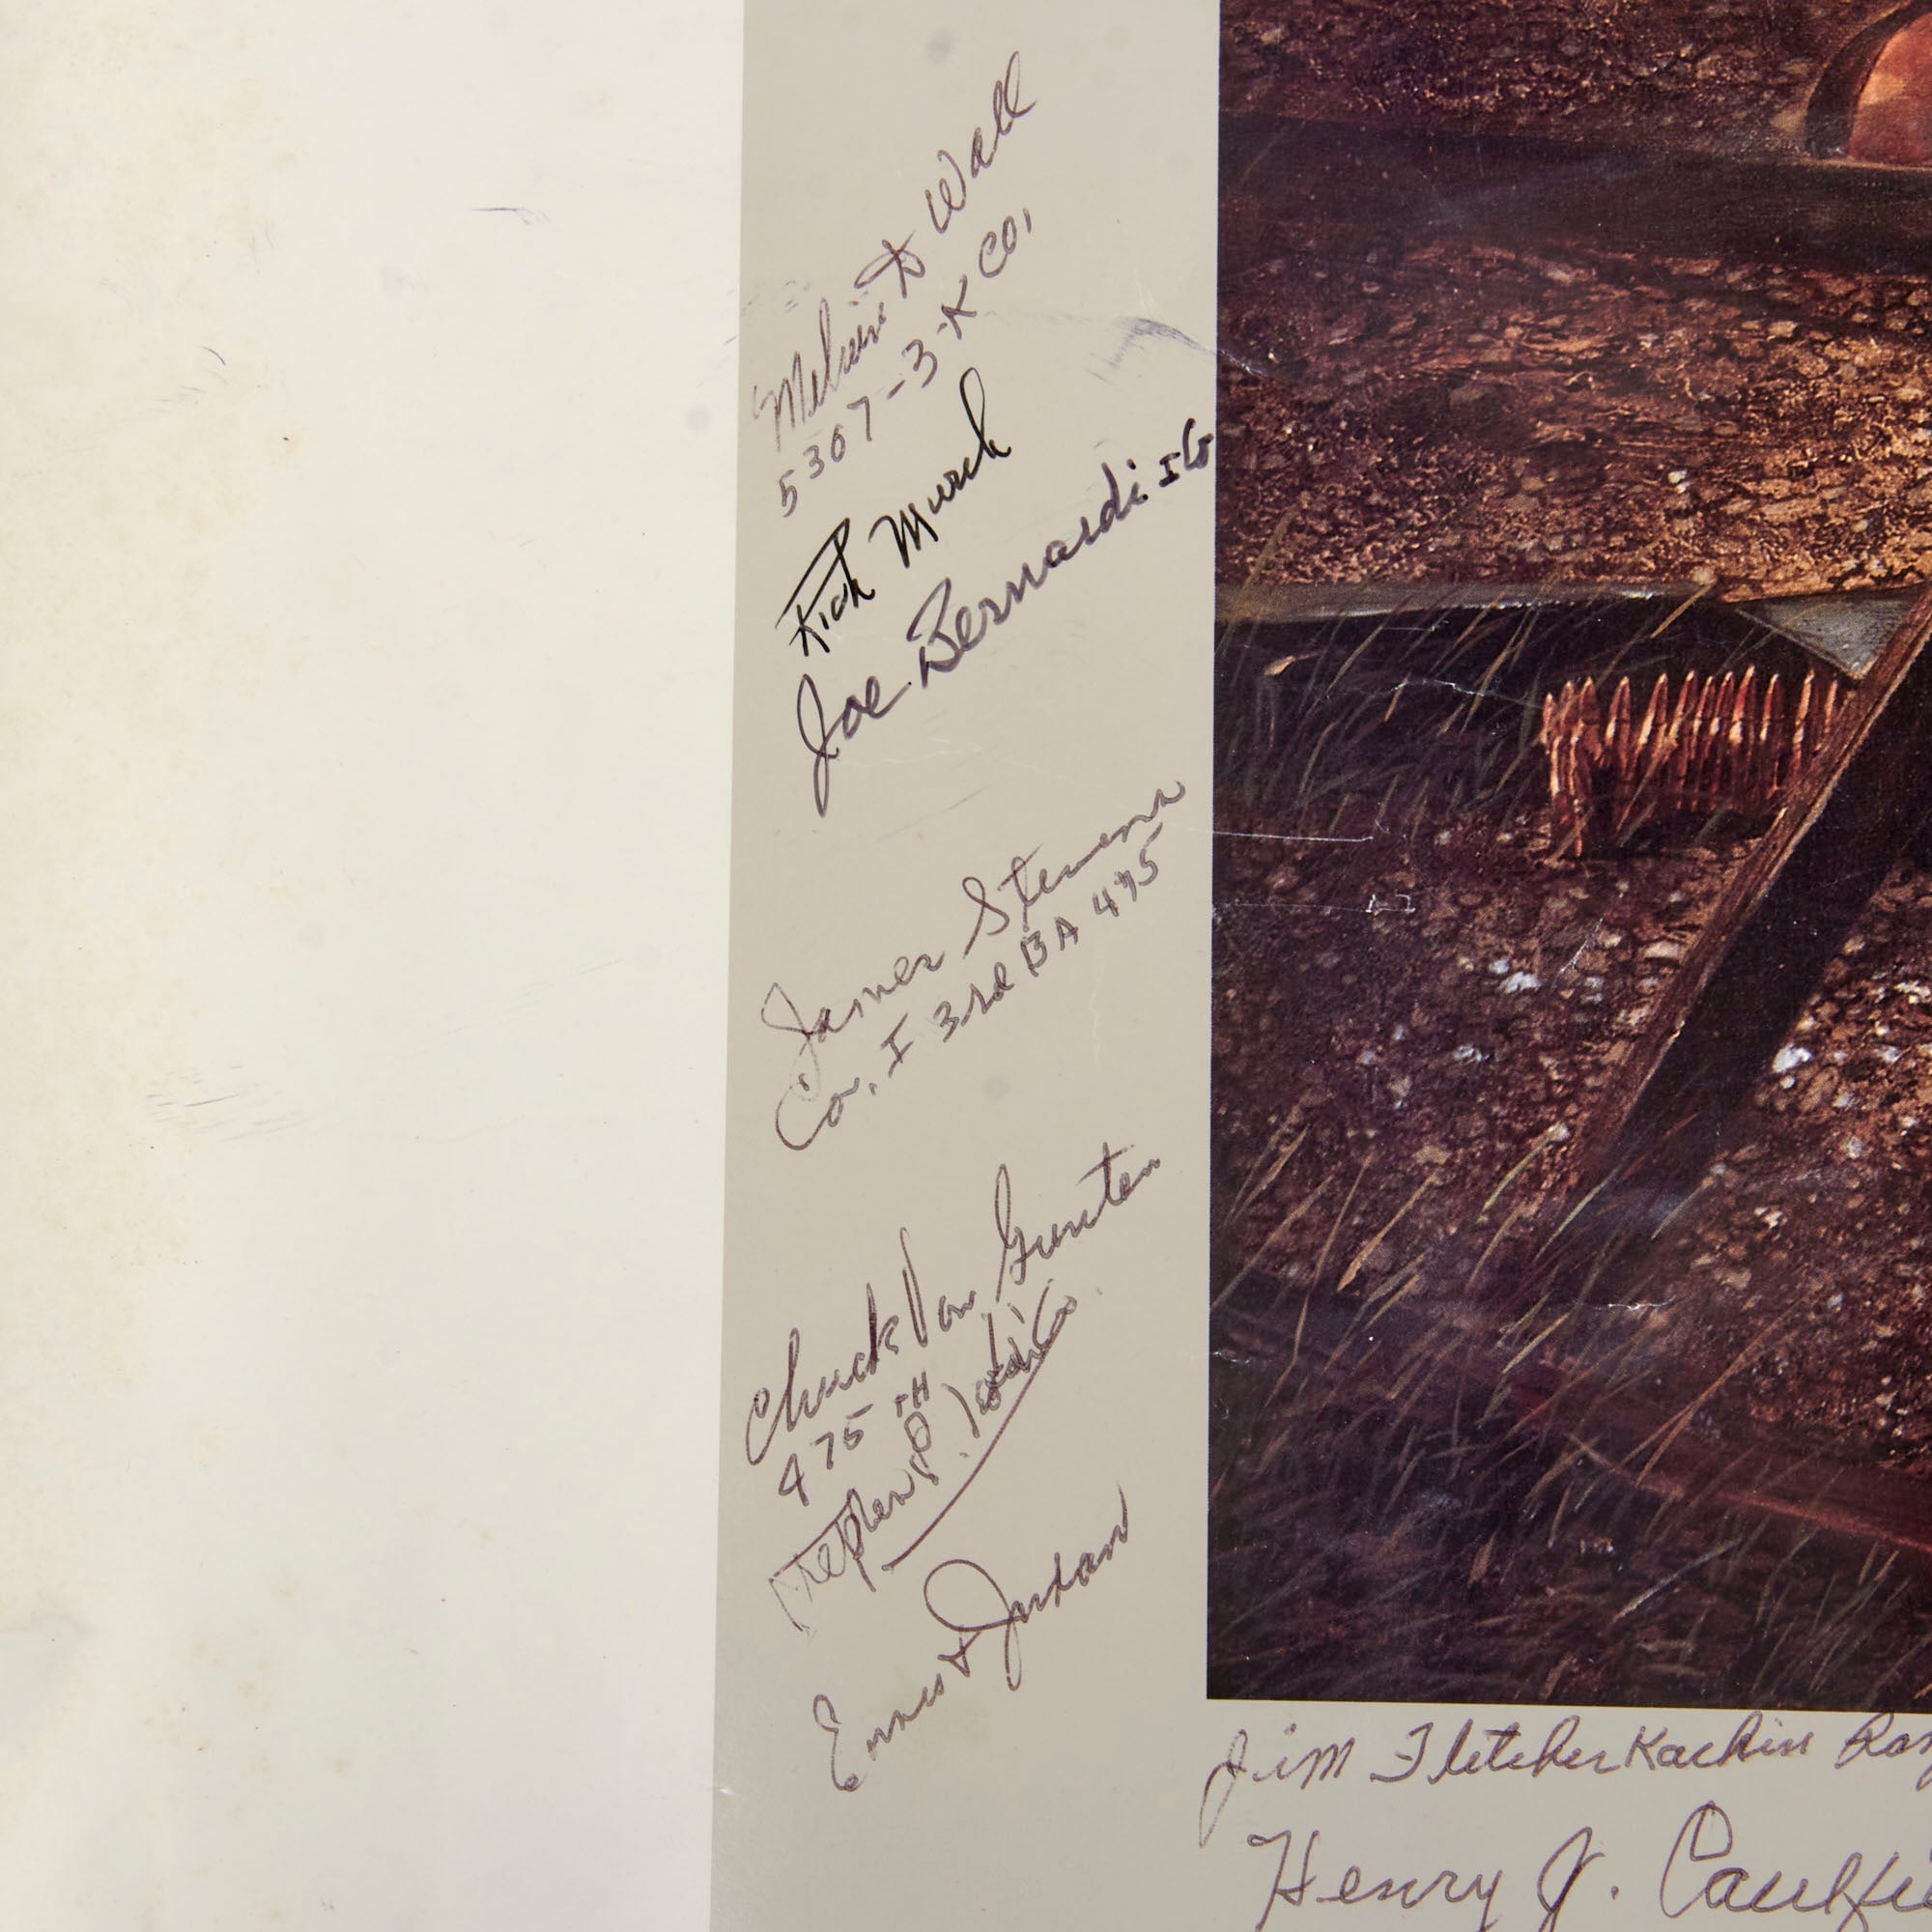 Melvin D Wall
5307-3-K CO,
Rich Murch
Joe Bernardi I Co
James Stevens
Co. I 3rd BA 475
Chuck Von Gunten
475TH
Stephen
Ernest Jordan
Jim Fletcher Kachin Ran
Henry J. Caulfie